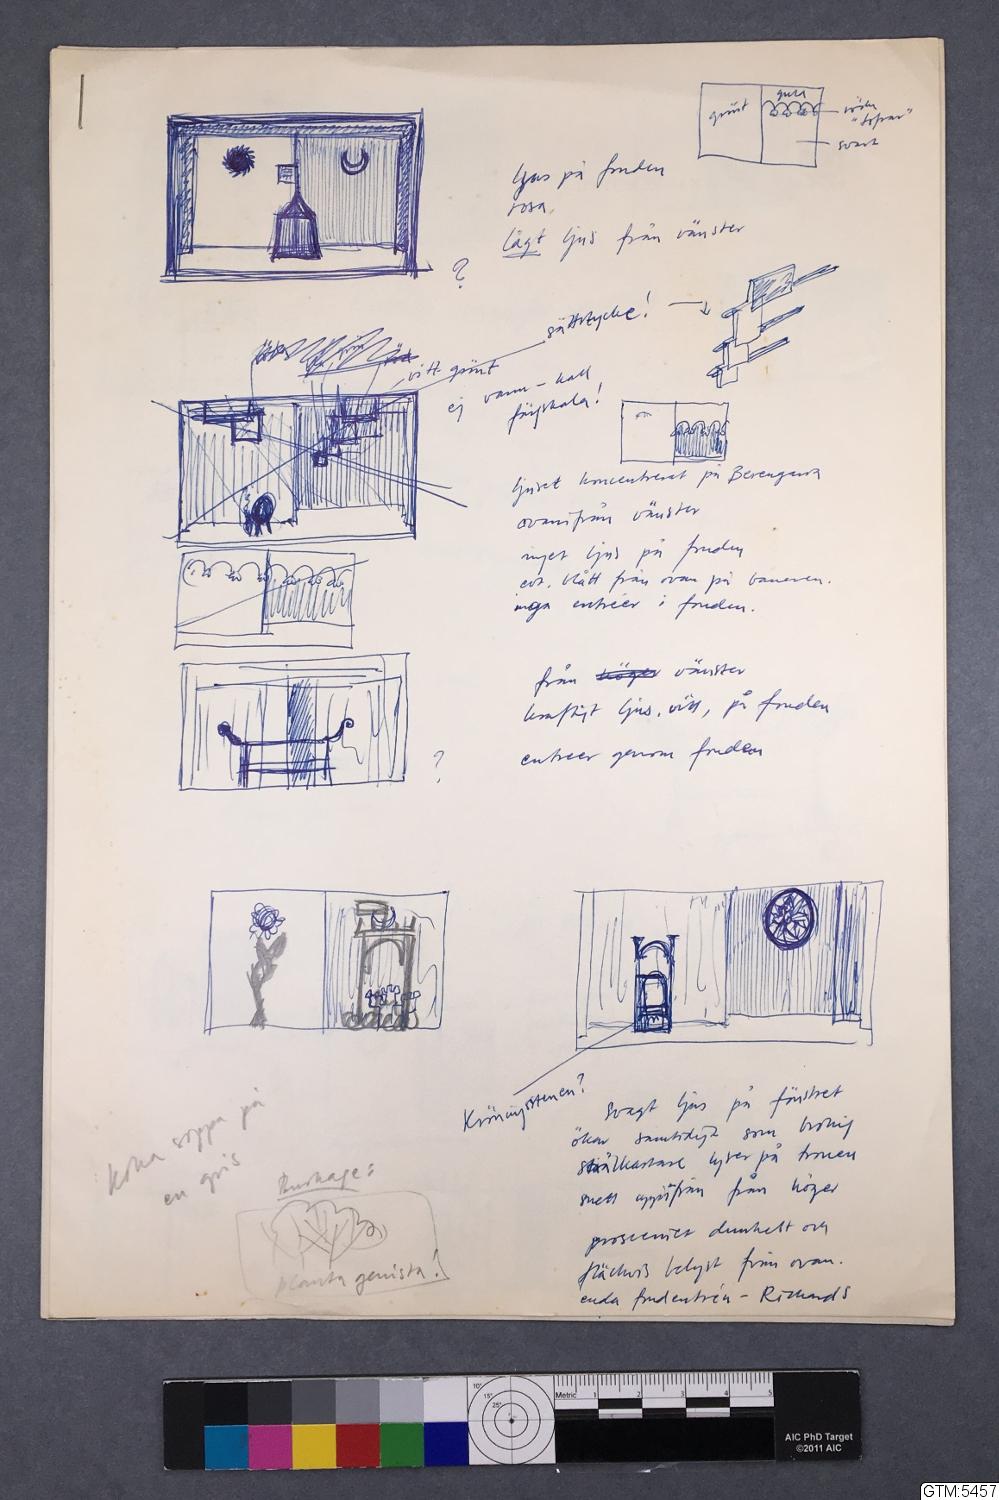 grönt
gult
röda
svart
ljus på fonden
rosa
lågt ljus från vänster
?
sättstycke!
vitt grönt
ej varm-kall
färgskala!
ljuset koncentrerat på Berengaria
ovanifrån vänster
inget ljus på fonden
evt. blått från ovan på baneren.
inga entréer i fonden.
från höger vänster
kraftigt ljus, vitt, på fonden
?
entréer genom fonden
Kröningsstenen?
Svagt ljus på fönstret
ökar samtidigt som
strålkastare lyser på tronen
snett uppifrån från höger
prosceniet dunkelt och
fläckvis belyst från ovan.
enda fondentrén - Richards
Koka soppa på
en gris
Buskage:
planta genista!
Metric 1 2 3 4 5
10°
15°
25°
AIC PhD Target
©2011 AIC
GTM:5457